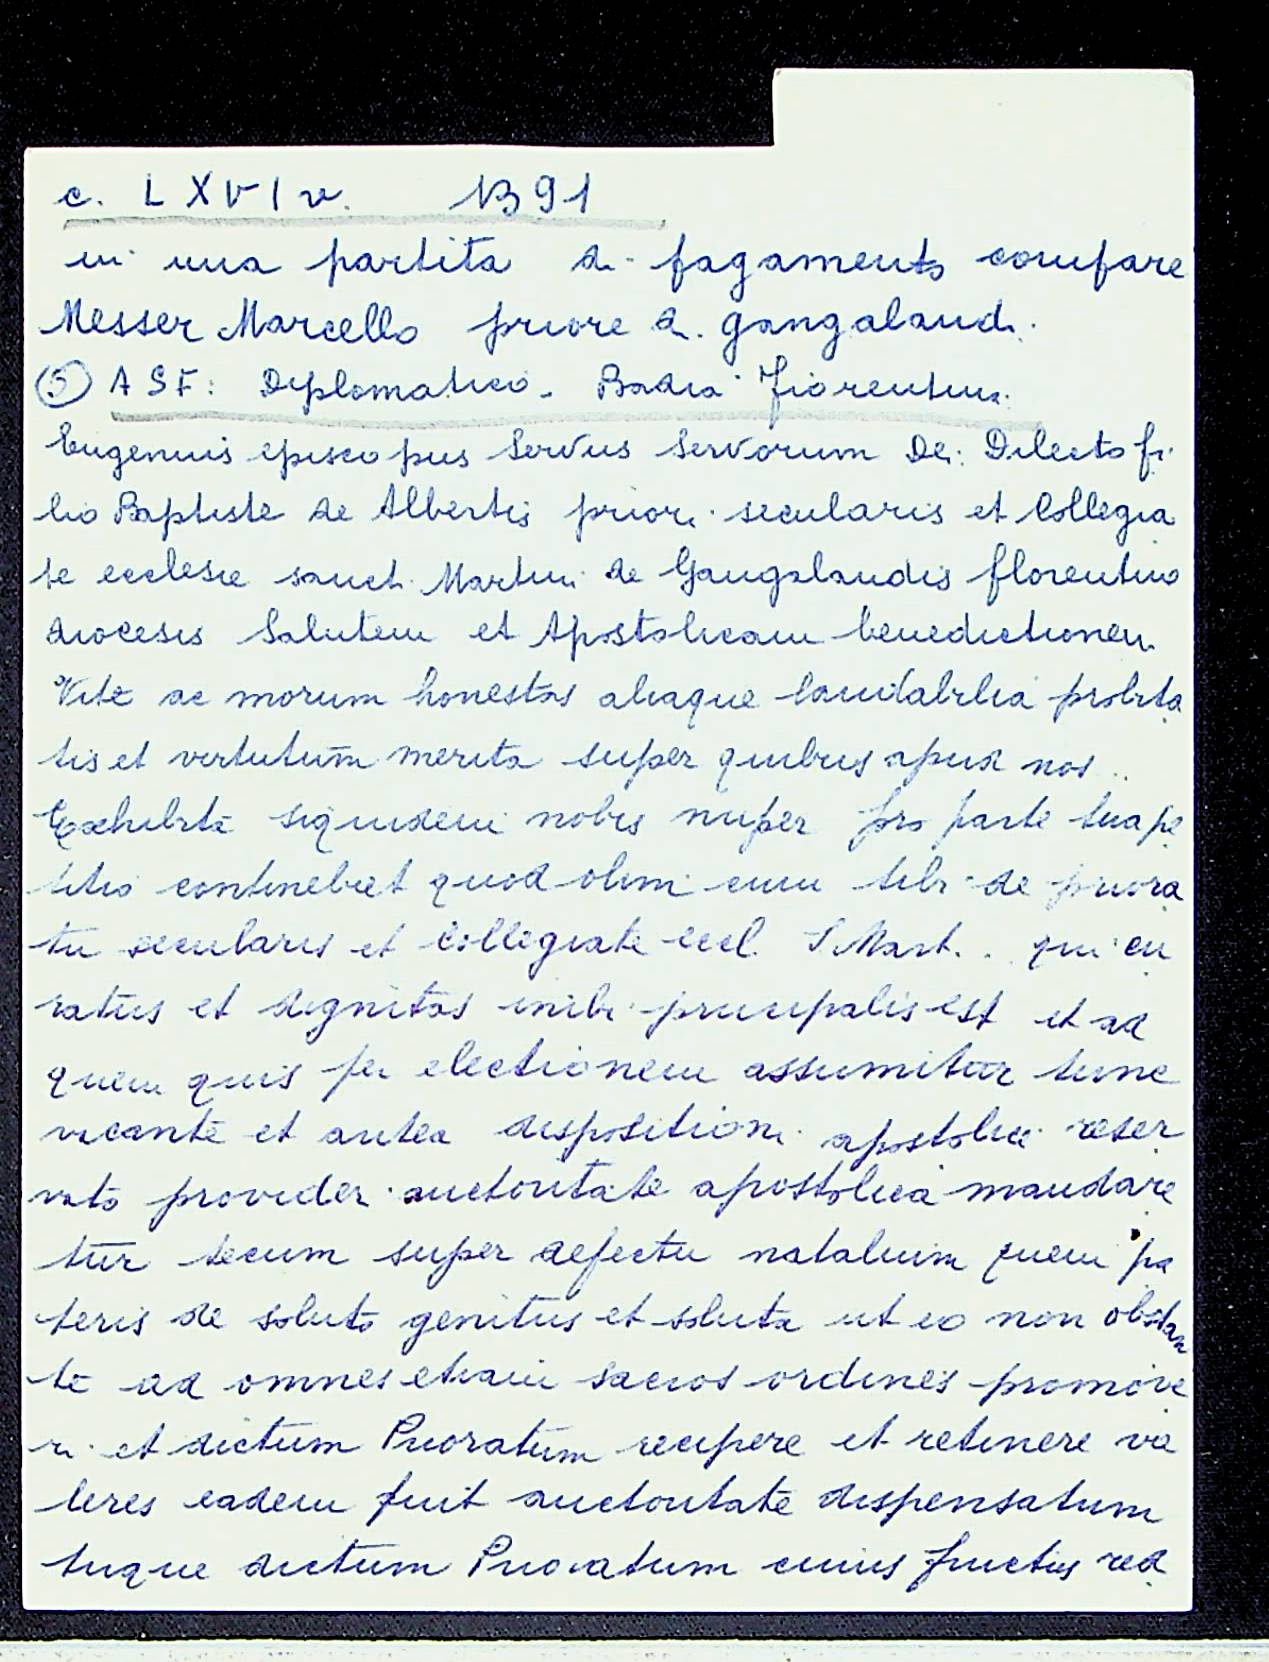 c. LXVI v. 1391
in una partita di pagamento compare
Messer Marcello priore di Gangalandi.
(5) ASF: Diplomatico - Badia Fiorentina.
Eugenius episcopus Servus Servorum Dei: Dilecto fi
lio Baptiste de Albertis priori secularis et Collegia
te ecclesie sancti Martini de Gangalandis florentino
diocesis Salutem et Apostolicam benedictionem
Vite ac morum honestas aliaque laudabilia probita
tis et virtutum merita super quibus apud nos ..
Exhibita siquidem nobis nuper pro parte tua pe
titio continebat quod olim cum tibi de priora
tu secularis et Collegiate eccl. S Mart. . qui cu
ratus et dignitas inibi principalis est et ad
quem quis per electionem assumitur tunc
vacante et antea dispositioni apostolice reser
vato provideri auctoritate apostolica mandare
tur tecum super defectu natalium quem pa
teris de soluto genitus et soluta ut eo non obstan
te ad omnes etiam sacros ordines promove
ri et dictum Prioratum recipere et retinere va
leres eadem fuit auctoritate dispensatum
tuque dictum Prioratum cuius fructus red